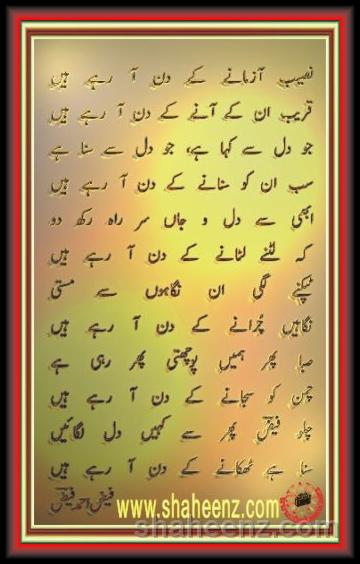 نصیب آزمانے کے دن آ رہے ہیں
قریب ان کے آنے کے دن آ رہے ہیں
جو دل سے کہا ہے، جو دل سے سنا ہے
سب ان کو سنانے کے دن آ رہے ہیں
ابھی سے دل و جاں سر راہ رکھ دو
کہ لٹنے لٹانے کے دن آ رہے ہیں
ٹپکنے لگی ان نگاہوں سے مستی
نگاہیں چُرانے کے دن آ رہے ہیں
صبا پھر ہمیں پوچھتی پھر رہی ہے
چمن کو سجانے کے دن آ رہے ہیں
چلو فیضؔ پھر سے کہیں دل لگائیں
سنا ہے ٹھکانے کے دن آ رہے ہیں
فیض احمد فیضؔ
www.shaheenz.com
shaheenz.com